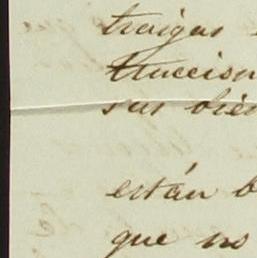 traigas
truccion
sus bien
están b
que no